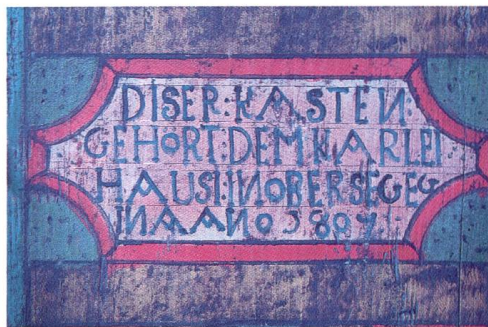 DISER:KASTEN:
GEHORT:DEM KARLEI
HAUSI:INOBERSEGEG
INAANO 5807